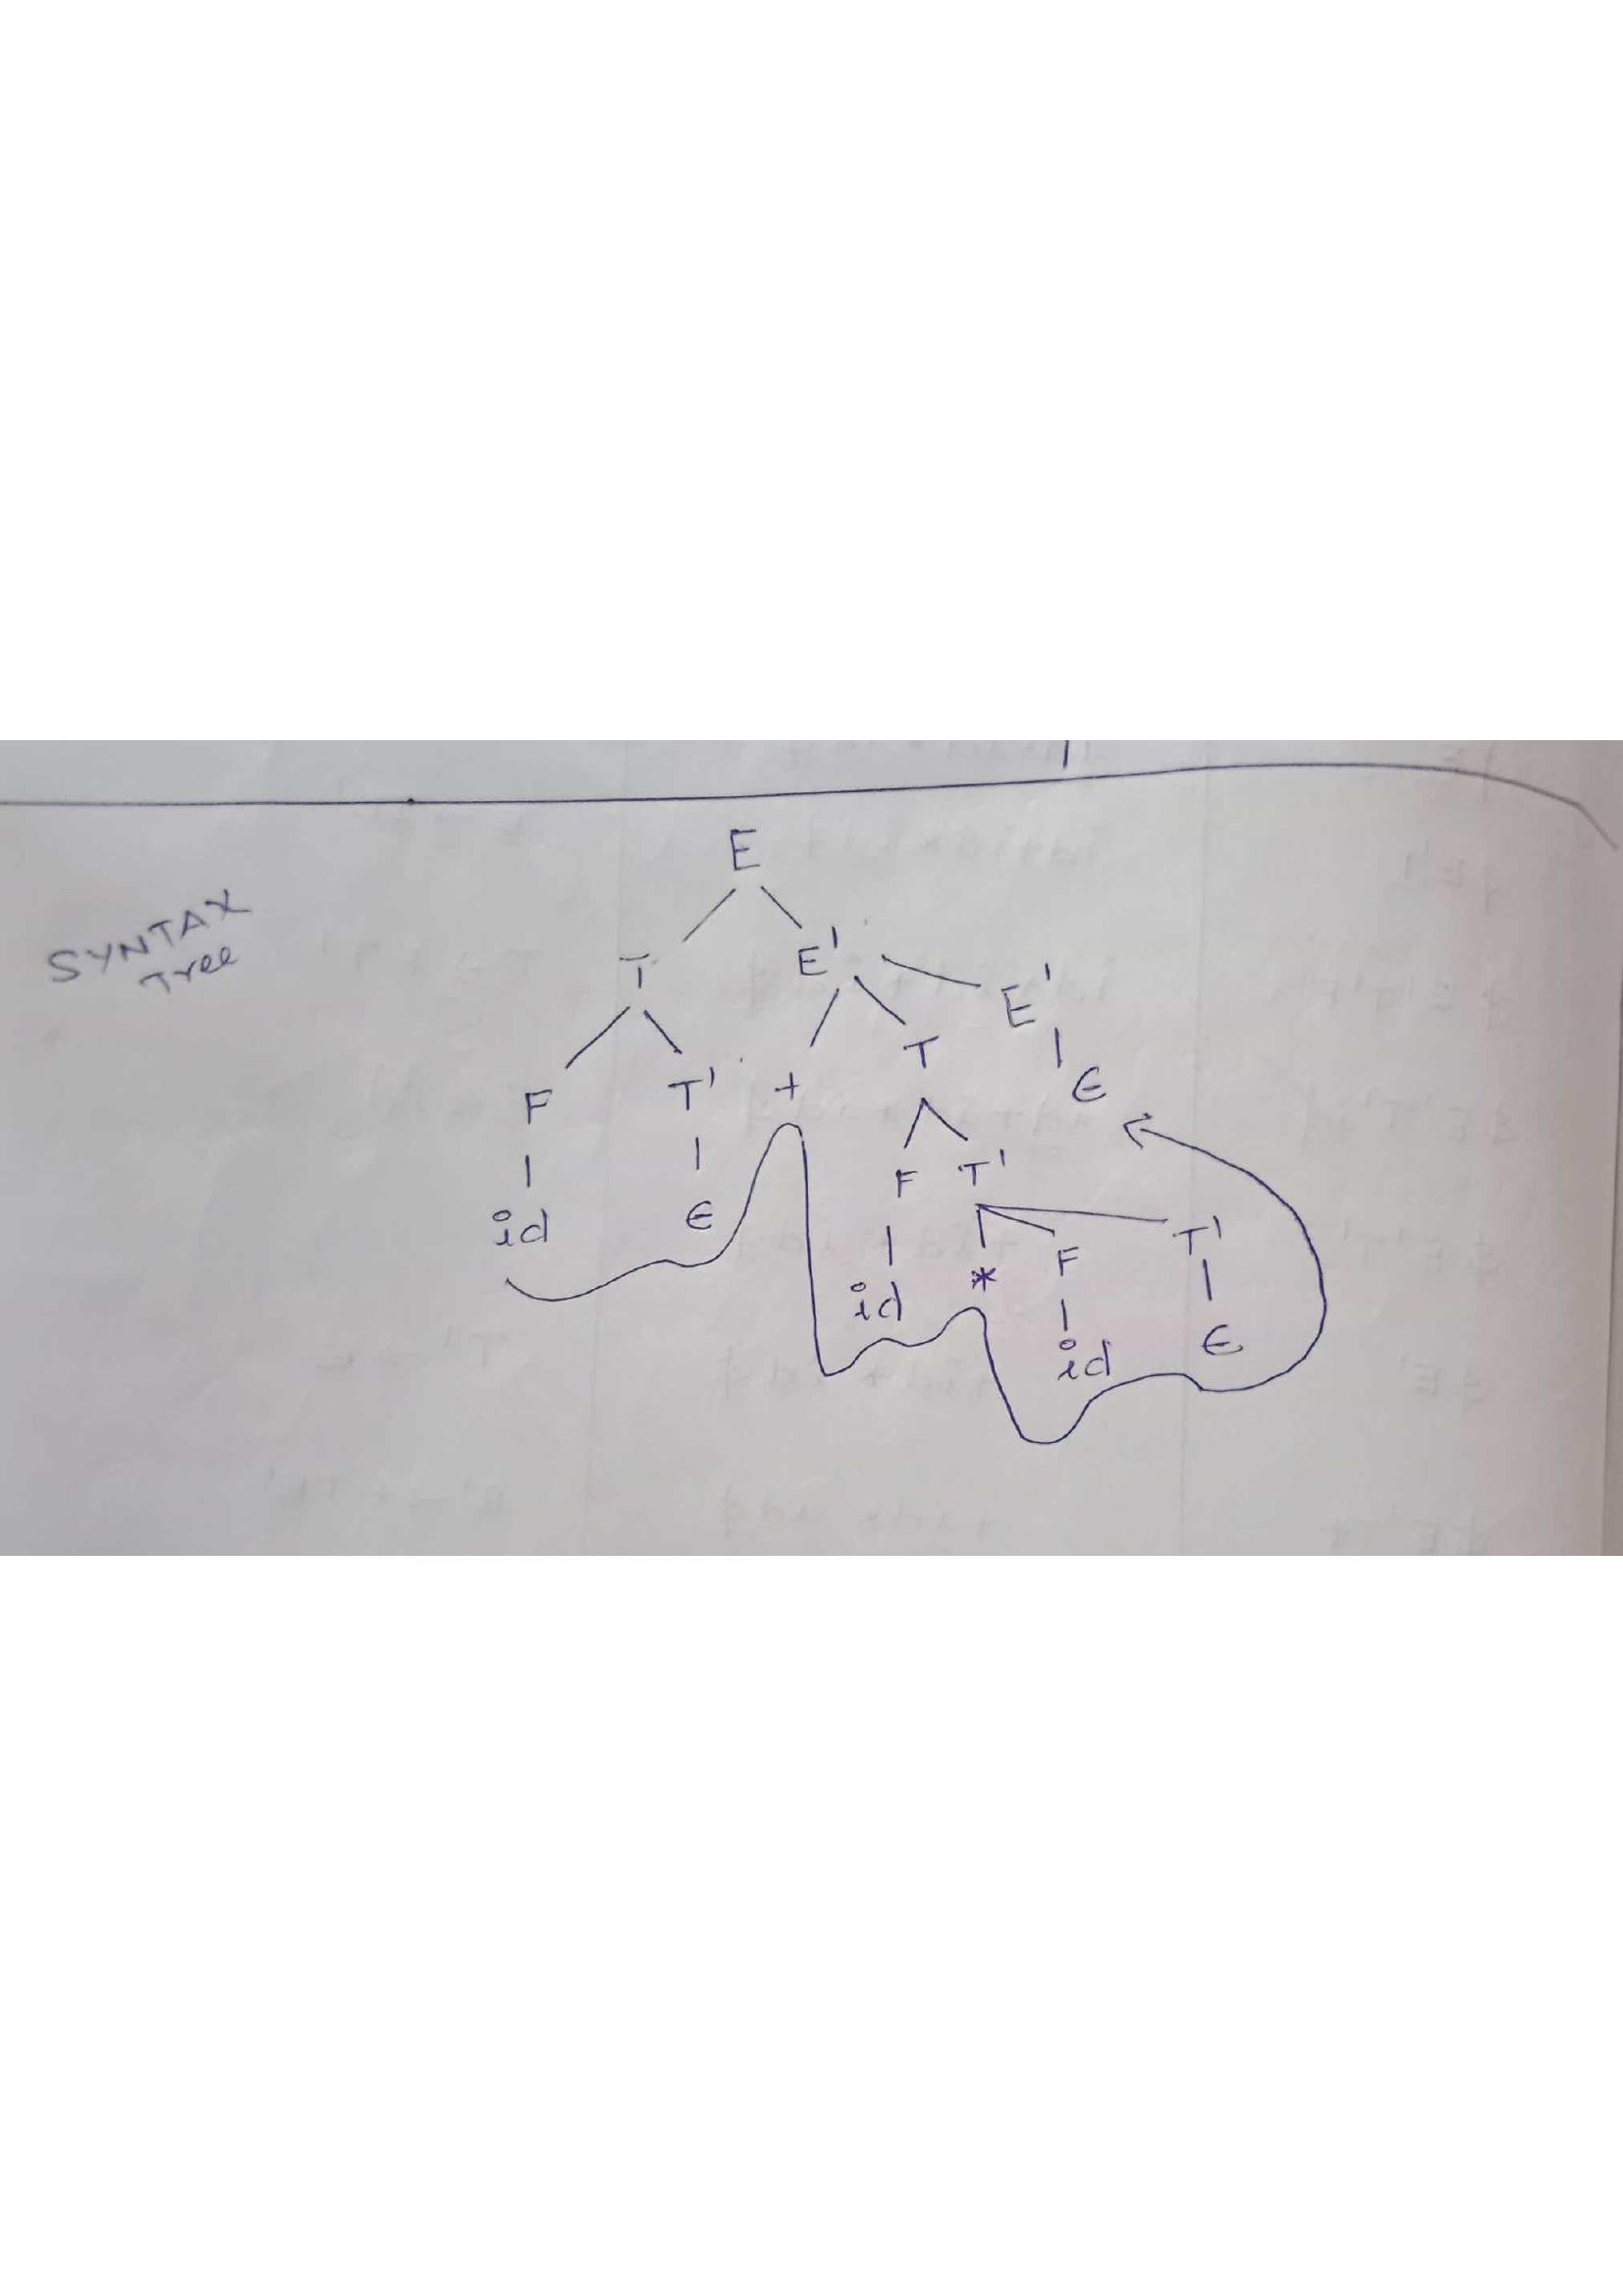 E
SYNTAX
Tree
T E' E'
F T' + T ϵ
id ϵ F T'
id * F T'
id ϵ